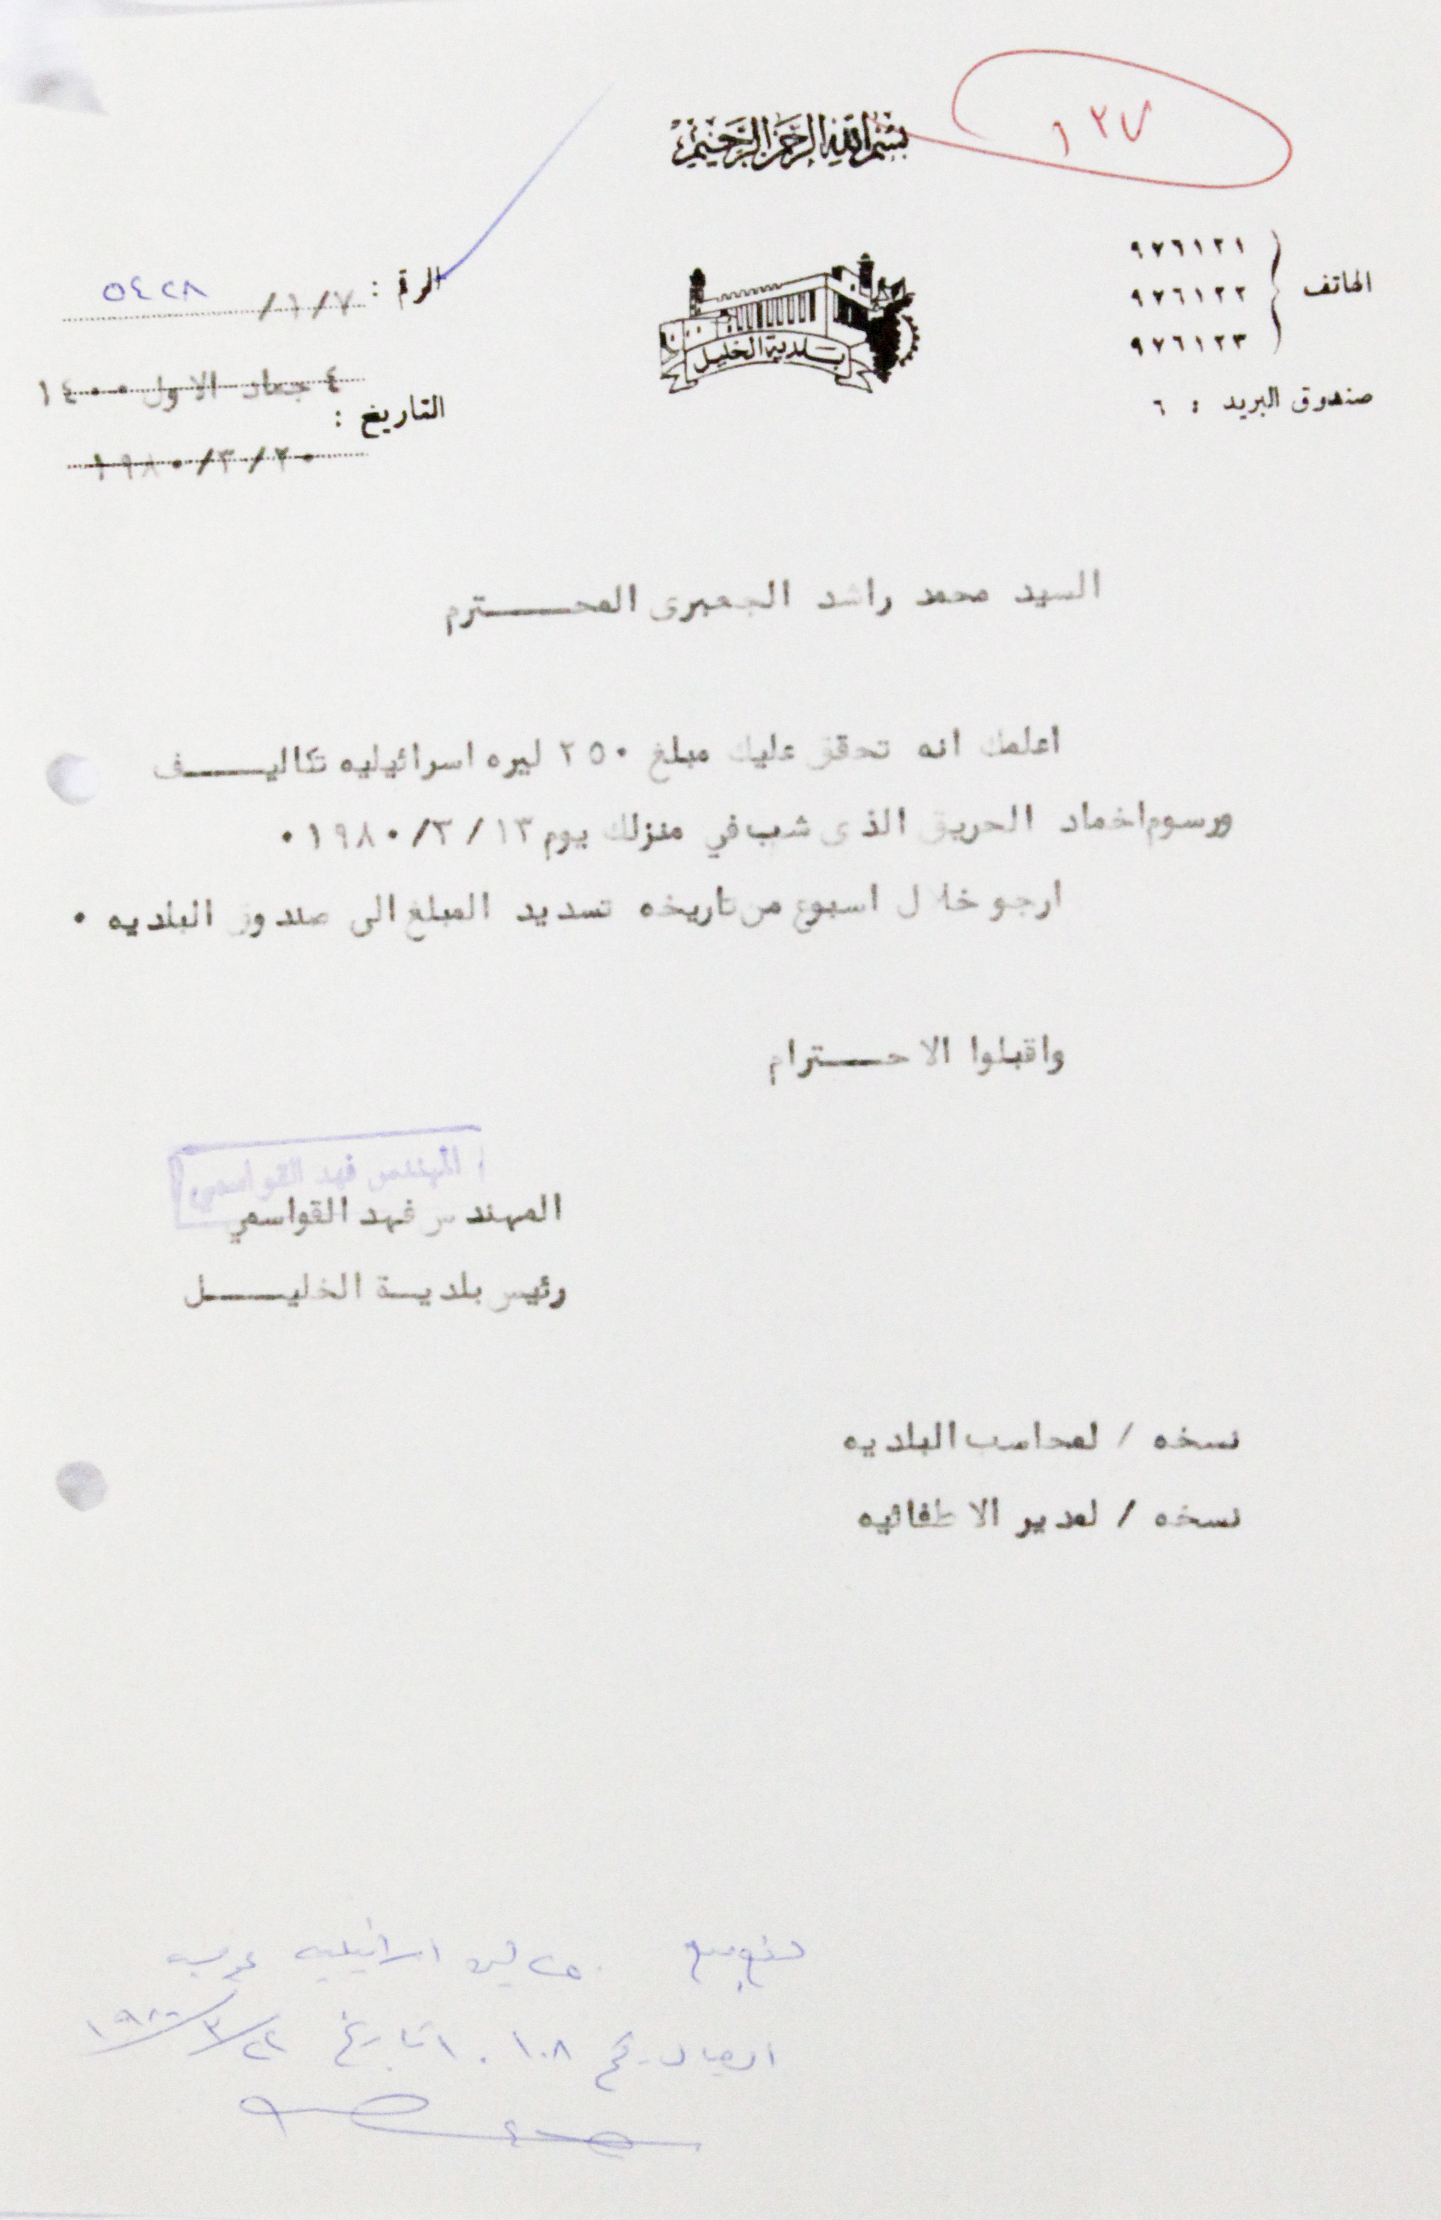 ١٢٧
بسم الله الرحمن الرحيم
الهاتف
٩٧٦١٢١
٩٧٦١٢٢
٩٧٦١٢٣
صندوق البريد : ٦
بلدية الخليل
الرقم : ٧/١/ ٥٤٢٨
التاريخ :
٤ جماد الاول ١٤٠٠
٢٠/٣/١٩٨٠
السيد محمد راشد الجعبرى المحـــترم
اعلمك انه تحقق عليك مبلغ ٢٥٠ ليره اسرائيليه تكاليـــف
ورسوم اخماد الحريق الذى شب في منزلك يوم ١٣/٣/١٩٨٠٠
ارجو خلال اسبوع من تاريخه تسديد المبلغ الى صندوق البلديه ٠
واقبلوا الاحـــترام
المهندس فهد القواسمي
المهندس فهد القواسمي
رئيس بلديـة الخليـــل
نسخه / لمحاسب البلديه
نسخه / لمدير الاطفائيه
دفع مبلغ ٢٥٠ ليره اسرائيليه بموجب
ايصال رقم ١٠٨ تاريخ ٢٢/٣/١٩٨٠